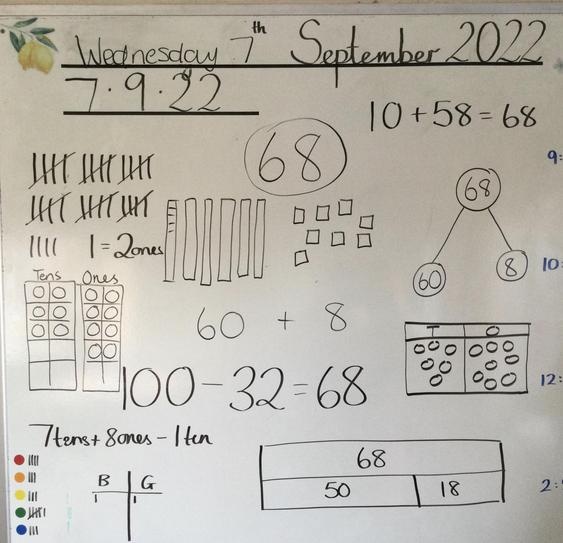 Wednesday 7th September 2022
7.9.22
10+58=68
68
1=2ones
68
60 8
Tens Ones
60 + 8
T O
100-32=68
7tens+8ones-1ten
68
50 18
B G
9:
10:
12:
2: